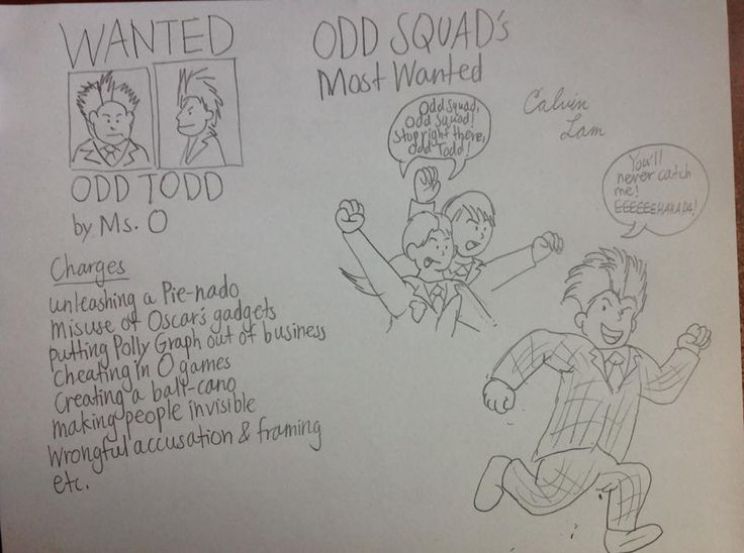 WANTED
ODD TODD
by Ms. O
Charges
unleashing a Pie-nado
misuse of Oscar's gadgets
putting Polly Graph out of business
Cheating in O games
Creating a ball-cano
making people invisible
Wrongful accusation & framing
etc.
ODD SQUAD's
Most Wanted
Calvin
Lam
Odd squad,
Odd Squad!
Stop right there,
Odd Todd!
You'll
never catch
me!
EEEEEEHAHAHA!